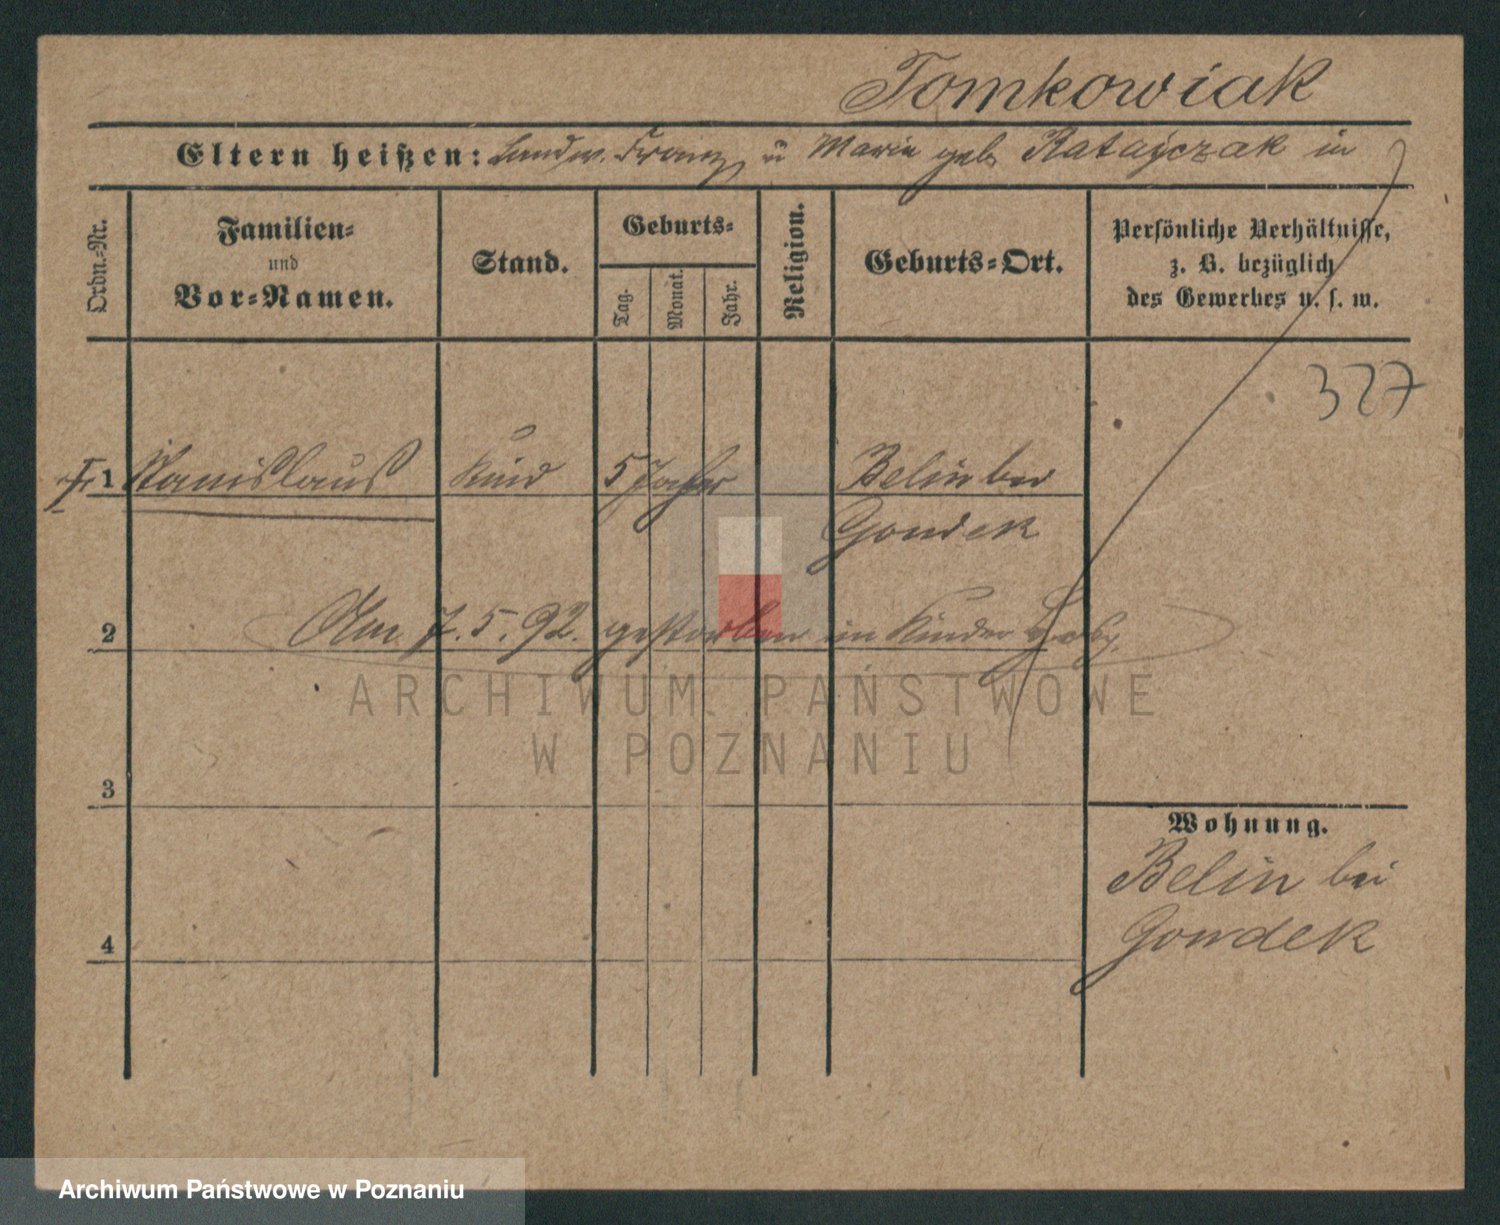 Tomkowiak
Eltern heißen: Landw. Franz u Marie geb. Ratajczak in
Ordn.-Nr.
Familien-
und
Vor-Namen.
Stand.
Geburts-
Tag.
Monat.
Jahr.
Religion.
Geburts-Ort.
Persönliche Verhältnisse,
z. B. bezüglich
des Gewerbes u. s. w.
327
1 Stanislaus Kind 5 Jahre Belin bei
Gondek
2 Am 7.5.92. gestorben im Kinder
ARCHIWUM PAŃSTWOWE
W POZNANIU
3
Wohnung.
Belin bei
Gondek
4
Archiwum Państwowe w Poznaniu